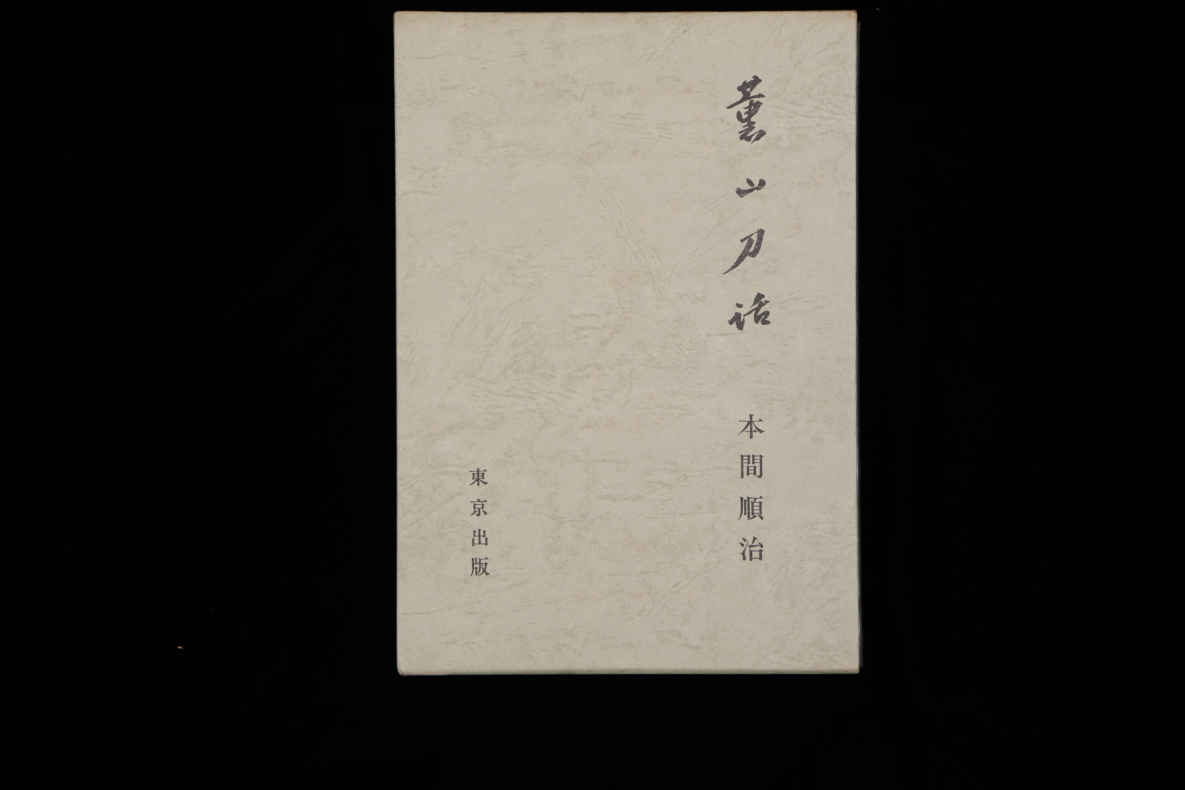 薫山刀話
本間順治
東京出版